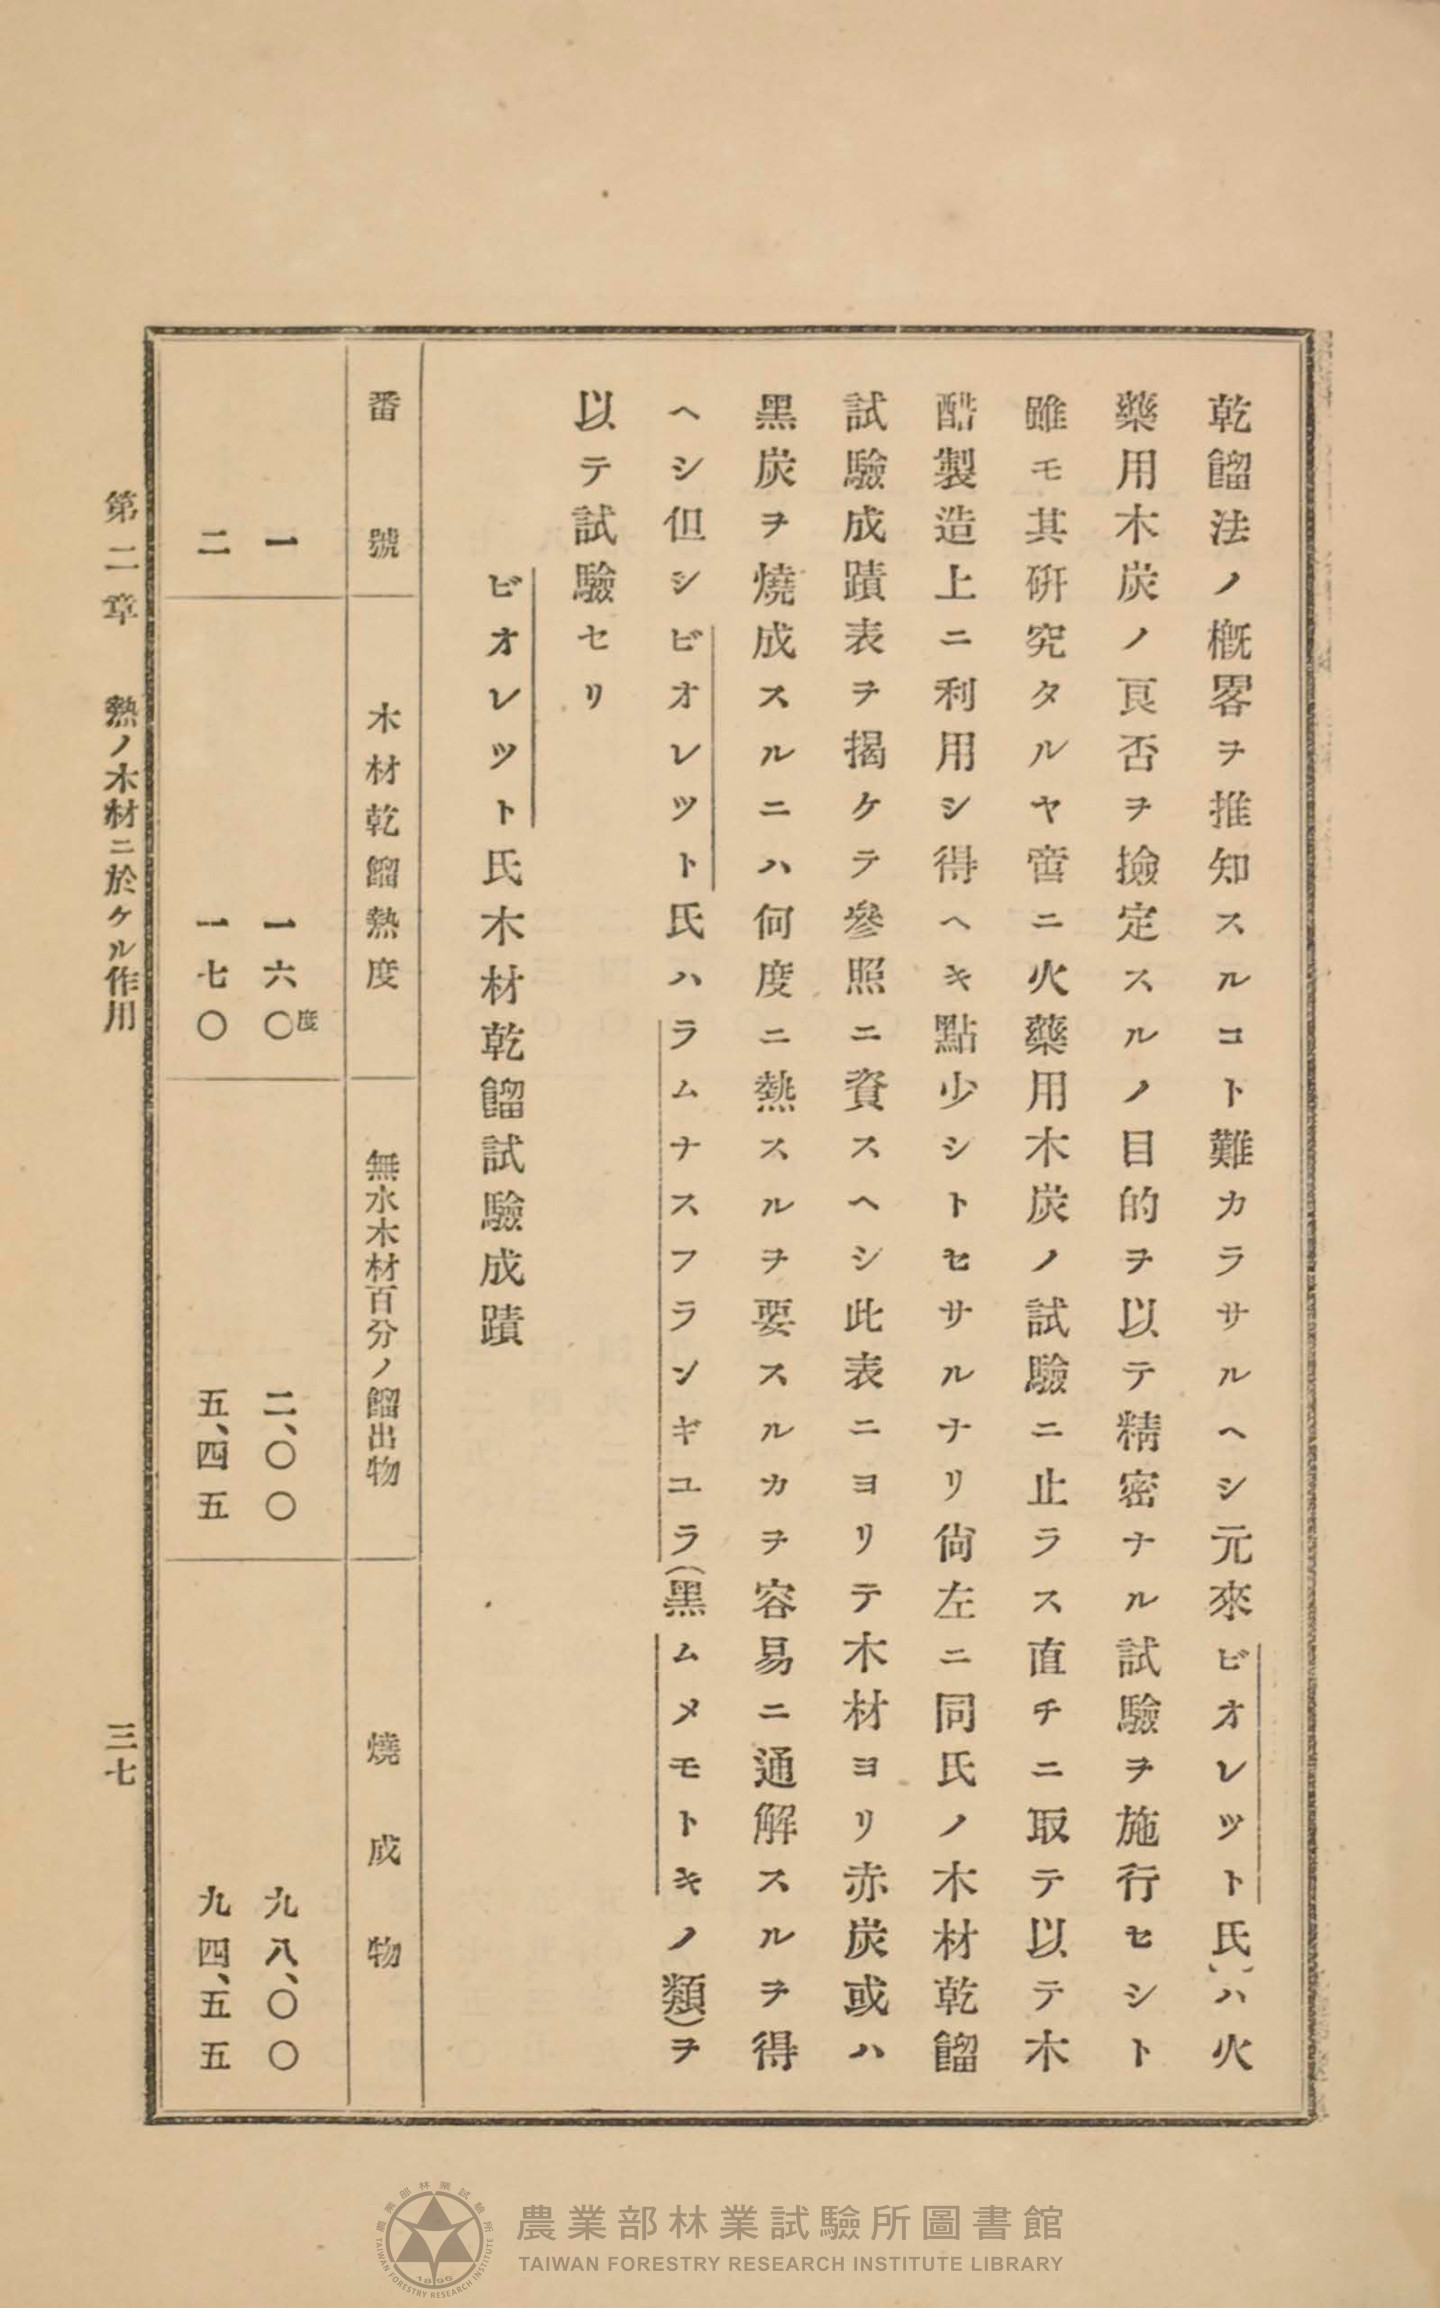 乾餾法ノ槪畧ヲ推知スルコト難カラサルヘシ元來ビオレット氏ハ火
藥用木炭ノ良否ヲ撿定スルノ目的ヲ以テ精密ナル試驗ヲ施行セシト
雖モ其硏究タルヤ啻ニ火藥用木炭ノ試驗ニ止ラス直チニ取テ以テ木
醋製造上ニ利用シ得ヘキ點少シトセサルナリ尙左ニ同氏ノ木材乾餾
試驗成蹟表ヲ揭ケテ參照ニ資スヘシ此表ニヨリテ木材ヨリ赤炭或ハ
黑炭ヲ燒成スルニハ何度ニ熱スルヲ要スルカヲ容易ニ通解スルヲ得
ヘシ但シビオレット氏ハラムナスフランギユラ(黑ムメモトキノ類)ヲ
以テ試驗セリ
ビオレット氏木材乾餾試驗成蹟
番號 木材乾餾熱度 無水木材百分ノ餾出物 燒成物
一 一六〇度 二、〇〇 九八、〇〇
二 一七〇 五、四五 九四、五五
第二章 熱ノ木材ニ於ケル作用 三七
農業部林業試驗所圖書館
TAIWAN FORESTRY RESEARCH INSTITUTE LIBRARY
農業部林業試驗所
TAIWAN FORESTRY RESEARCH INSTITUTE
1896